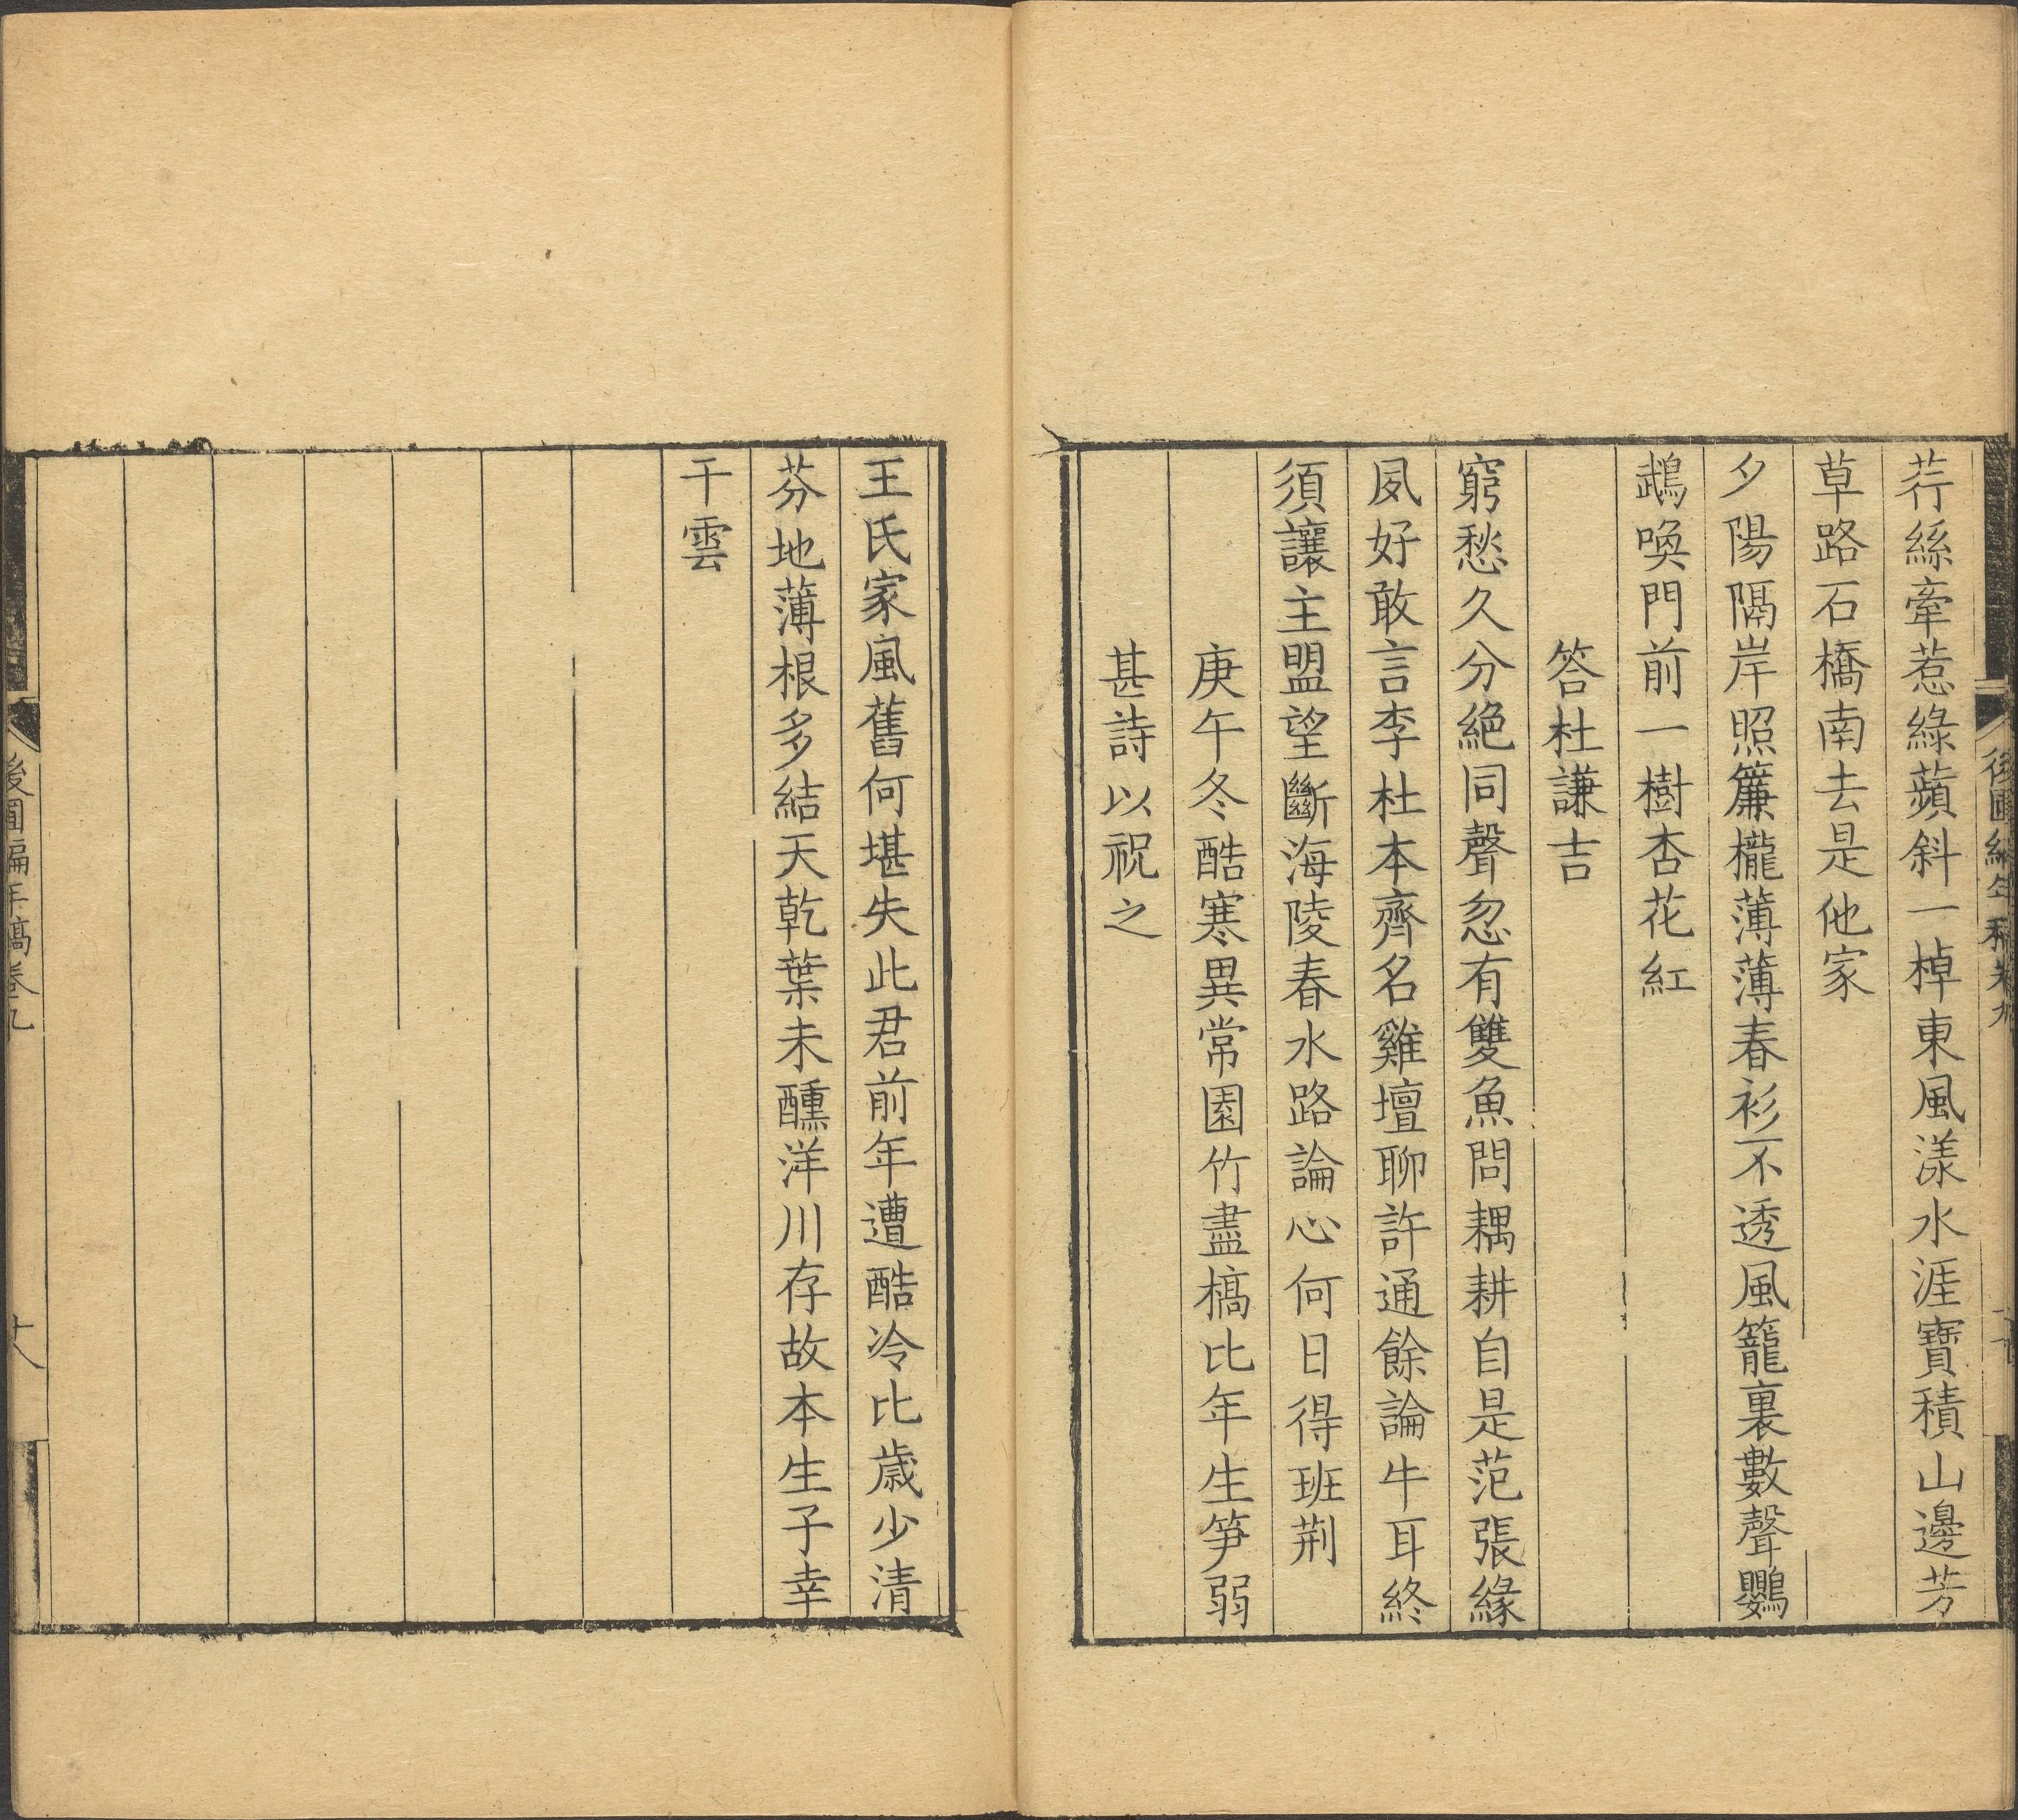 荇絲牽惹綠蘋斜一棹東風漾水涯寶積山邊芳
草路石橋南去是他家
夕陽隔岸照簾櫳薄薄春衫不透風籠裏數聲鸚
鵡喚門前一樹杏花紅
答杜謙吉
窮愁久分絕同聲忽有雙魚問耦耕自是范張緣
夙好敢言李杜本齊名雞壇聊許通餘論牛耳終
須讓主盟望斷海陵春水路論心何日得班荆
庚午冬酷寒異常園竹盡槁比年生笋弱
甚詩以祝之
王氏家風舊何堪失此君前年遭酷冷比歲少清
芬地薄根多結天乾葉未醺洋川存故本生子幸
干雲
後圃編年稿卷九
十八